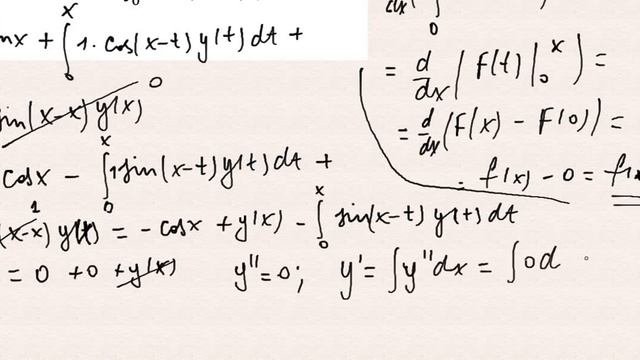 nx + ∫₀ˣ 1. cos(x-t) y(t) dt +
sin(x-x) y(x) 0
cos x - ∫₀ˣ 1 sin(x-t) y(t) dt +
(x-x) 1 y(t) = - cos x + y(x) - ∫₀ˣ sin(x-t) y(t) dt
= 0 + 0 + y(x) y'' = 0; y' = ∫ y'' dx = ∫ 0 d
= d/dx ( F(t) |₀ˣ ) =
= d/dx ( F(x) - F(0) ) =
= f(x) - 0 = f(x